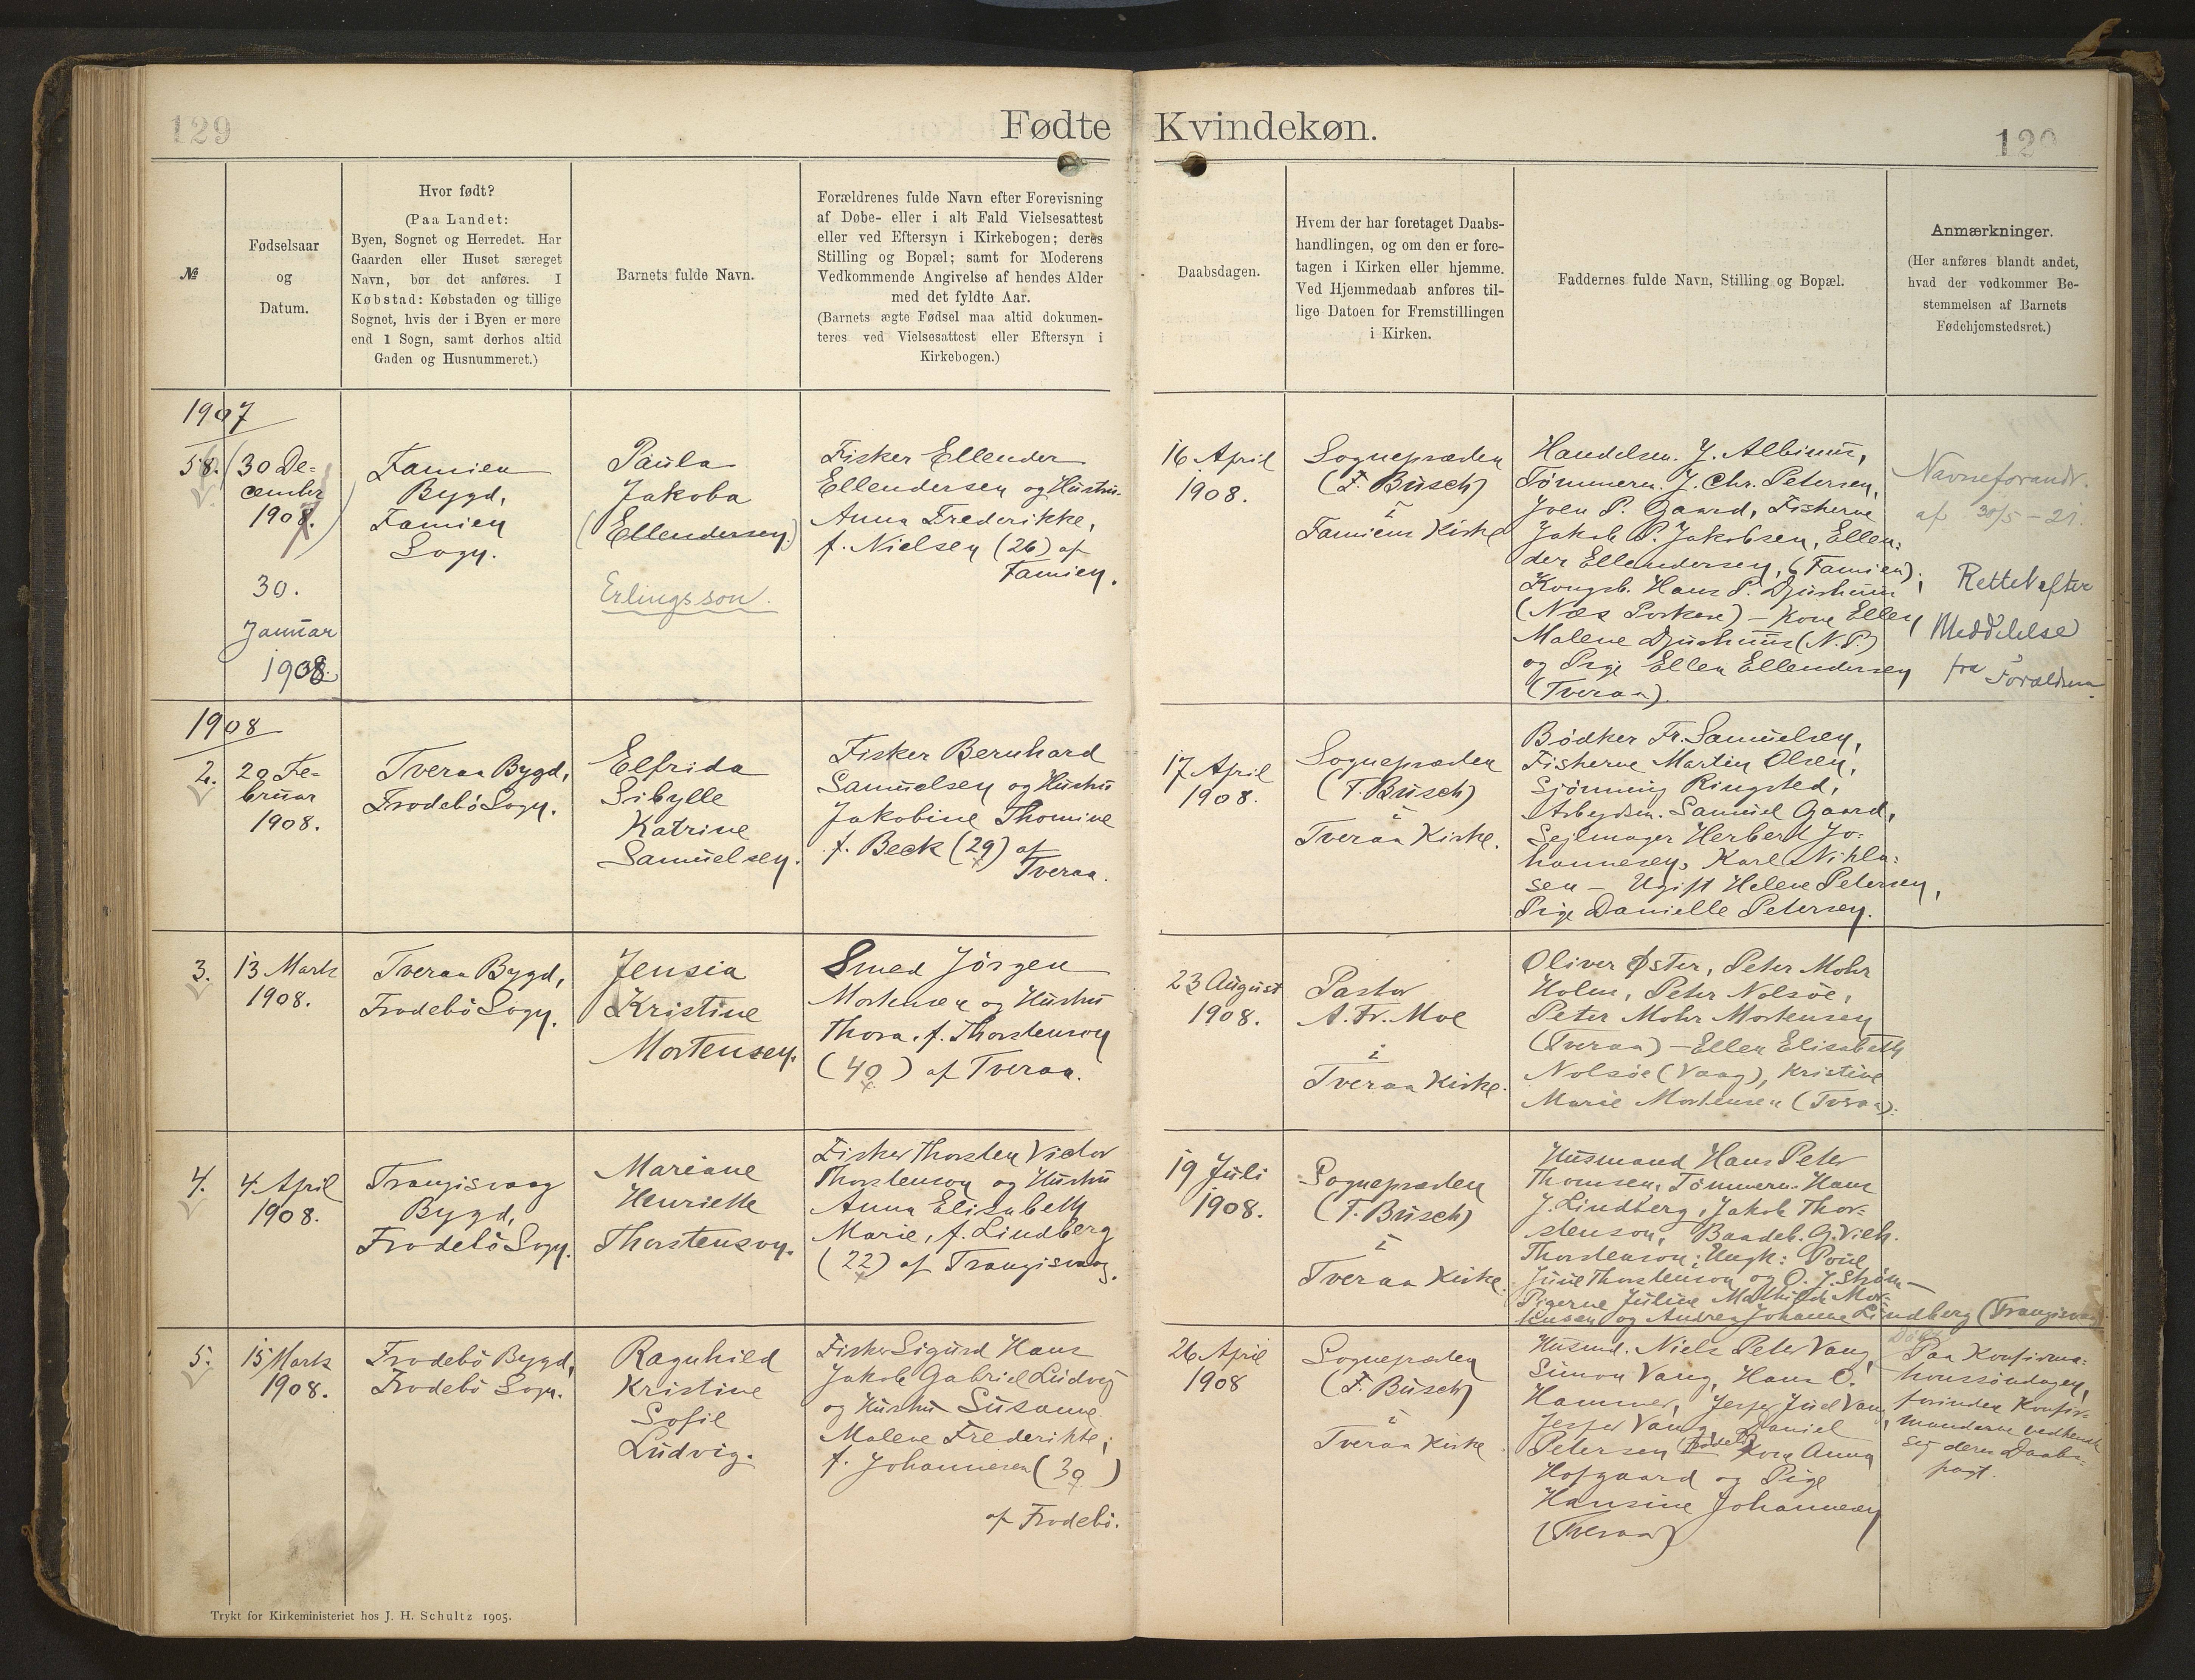 129
Fødte
Kvindekøn.
129
№
Fødselsaar
og
Datum.
Hvor født?
(Paa Landet:
Byen, Sognet og Herredet. Har
Gaarden eller Huset særeget
Navn, bør det anføres. I
Købstad: Købstaden og tillige
Sognet, hvis der i Byen er mere
end 1 Sogn, samt derhos altid
Gaden og Husnummeret.)
Barnets fulde Navn.
Forældrenes fulde Navn efter Forevisning
af Døbe- eller i alt Fald Vielsesattest
eller ved Eftersyn i Kirkebogen; deres
Stilling og Bopæl; samt for Moderens
Vedkommende Angivelse af hendes Alder
med det fyldte Aar.
(Barnets ægte Fødsel maa altid dokumen-
teres ved Vielsesattest eller Eftersyn i
Kirkebogen.)
Daabsdagen.
Hvem der har foretaget Daabs-
handlingen, og om den er fore-
tagen i Kirken eller hjemme.
Ved Hjemmedaab anføres til-
lige Datoen for Fremstillingen
i Kirken.
Faddernes fulde Navn, Stilling og Bopæl.
Anmærkninger.
(Her anføres blandt andet,
hvad der vedkommer Be-
stemmelsen af Barnets
Fødehjemstedsret.)
1907
58.
(30 De-
cember
1907.)
30.
Januar
1908.
Famien
Bygd,
Famien
Sogn.
Paula
Jakoba
(Ellendersen)
Erlingsson.
Fisker Ellender
Ellendersen og Hustru
Anna Frederikke,
f. Nielsen (26) af
Famien.
16 April
1908.
Sognepræsten
(F. Busch)
i
Famiens Kirke
Handelsm. J. Albinus,
Tømmerm. J. Chr. Petersen,
Joen P. Gaard, Fiskerne
Jakob P. Jakobsen, Ellen-
der Ellendersen, (Famien).
Kongsb. Hans P. Djurhuus
(Næs Porkere) - Kone Ellen
Malene Djurhuus (N. P.)
og Pige Ellen Ellendersen
(Tveraa).
Navneforandr.
af 30/5 - 21.
Rettet efter
Meddelelse
fra Forældrene
1908
2.
20 Fe-
bruar
1908.
Tveraa Bygd,
Frodebö Sogn.
Elfrida
Sibylle
Katrine
Samuelsen.
Fisker Bernhard
Samuelsen og Hustru
Jakobine Thomine
f. Beck (29) af
Tveraa.
17 April
1908.
Sognepræsten
(F. Busch)
i
Tveraa Kirke.
Bödker Fr. Samuelsen,
Fiskerne Martin Olsen,
Sjönning Ringsted,
Arbejdsm. Samuel Gaard,
Sejlmager Herbert Jo-
hannesen, Karl Nikla-
sen - Ugift Helene Petersen,
Pige Danielle Petersen.
3.
13 Marts
1908.
Tveraa Bygd,
Frodebö Sogn.
Jensia
Kristine
Mortensen.
Smed Jörgen
Mortensen og Hustru
Thora f. Thorstenson
(40) af Tveraa.
23 August
1908.
Pastor
A. Fr. Moe
i
Tveraa Kirke.
Oliver Øster, Peter Mohr
Holm, Peter Nolsöe,
Peter Mohr Mortensen
(Tveraa) - Ellen Elisabeth
Nolsöe (Vaag), Kristine
Marie Mortensen (Tveraa).
4.
4 April
1908.
Trangisvaag
Bygd,
Frodebö Sogn.
Mariane
Henriette
Thorstenson.
Fisker Thorsten Victor
Thorstenson og Hustru
Anna Elisabeth
Marie, f. Lindberg
(22) af Trangisvaag.
19 Juli
1908.
Sognepræsten
(F. Busch)
i
Tveraa Kirke.
Husmand Hans Peter
Thomsen, Tömmerm. Hans
J. Lindberg, Jakob Thor-
stenson, Baadeb. G. Vilh.
Thorstenson; Ungk: Poul
Juul Thorstenson og O. J. Ström -
Pigerne Juline Mathilde Mor-
tensen og Andrea Johanne Lindberg (Trangisvaag)
5.
15 Marts
1908.
Frodebö Bygd,
Frodebö Sogn.
Ragnhild
Kristine
Sofie
Ludvig.
Fisker Sigurd Hans
Jakob Gabriel Ludvig
og Hustru Susanne
Malene Frederikke,
f. Johannesen (30)
af Frodebö.
26 April
1908
Sognepræsten
(F. Busch)
i
Tveraa Kirke.
Husmd. Niels Peter Vang,
Simon Vang, Hans O.
Hammer, Jesper Juel Vang,
Jesper Vang, Daniel
Petersen (Frodebö) Kone Anna
Hofgaard og Pige
Hansine Johannesen
(Tveraa)
Paa Konfirma-
tionssöndagen,
forinden Konfir-
manderne vedkendte
sig deres Daabs-
pagt.
Trykt for Kirkeministeriet hos J. H. Schultz 1905.